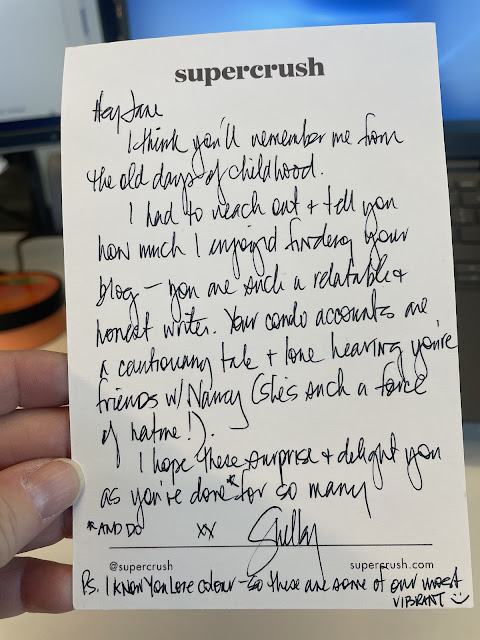 supercrush
Hey Jane
I think you'll remember me from
the old days of childhood.
I had to reach out + tell you
how much I enjoyed finding your
blog — you are such a relatable +
honest writer. Your condo accounts are
a cautionary tale + love hearing you're
friends w/ Nancy (she's such a force
of nature!).
I hope these surprise + delight you
as you've done* for so many
*AND DO xx Shelley
@supercrush supercrush.com
PS. I KNOW YOU LOVE COLOUR — SO THESE ARE SOME OF OUR MOST
VIBRANT